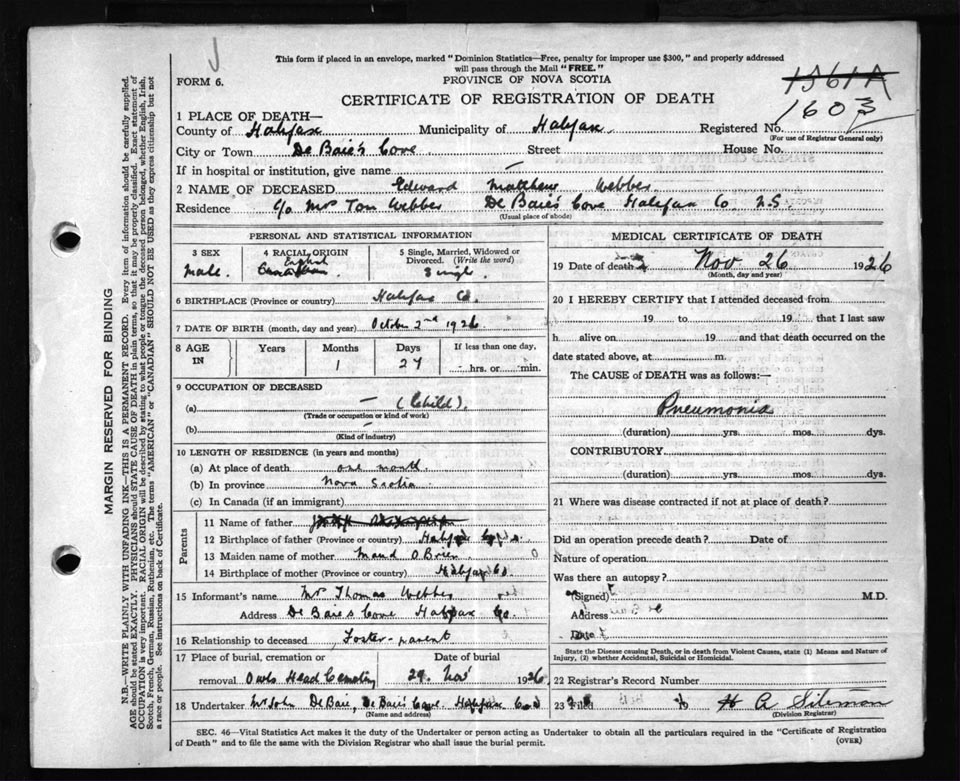 This form if placed in an envelope, marked "Dominion Statistics—Free, penalty for improper use $300," and properly addressed
will pass through the Mail "FREE."
FORM 6.
PROVINCE OF NOVA SCOTIA
1561A
CERTIFICATE OF REGISTRATION OF DEATH
1603
1 PLACE OF DEATH—
County of Halifax Municipality of Halifax Registered No.
(For use of Registrar General only)
City or Town De Baie's Cove Street House No.
If in hospital or institution, give name —
2 NAME OF DECEASED Edward Matthew Webber
Residence c/o Mrs Tom Webber De Baie's Cove Halifax Co N.S.
(Usual place of abode)
PERSONAL AND STATISTICAL INFORMATION
3 SEX 4 RACIAL ORIGIN 5 Single, Married, Widowed or
Divorced. (Write the word)
English
Male Canadian Single
6 BIRTHPLACE (Province or country) Halifax Co.
7 DATE OF BIRTH (month, day and year) October 2nd 1926
8 AGE IN Years Months Days If less than one day,
1 27 hrs. or min.
9 OCCUPATION OF DECEASED
(a) — (Child).
(Trade or occupation or kind of work)
(b) —
(Kind of industry)
10 LENGTH OF RESIDENCE (in years and months)
(a) At place of death one month
(b) In province Nova Scotia
(c) In Canada (if an immigrant)
Parents
11 Name of father
12 Birthplace of father (Province or country) Halifax
13 Maiden name of mother Maud O'Brien
14 Birthplace of mother (Province or country) Halifax Co.
15 Informant's name Mr Thomas Webber
Address De Baie's Cove Halifax Co.
16 Relationship to deceased Foster-parent
17 Place of burial, cremation or Date of burial
removal Owls Head Cemetery 29 Nov 1926
18 Undertaker Mr John De Baie, De Baie's Cove Halifax Co
(Name and address)
MEDICAL CERTIFICATE OF DEATH
19 Date of death Nov 26 1926
(Month, day and year)
20 I HEREBY CERTIFY that I attended deceased from
19 to 19 that I last saw
h alive on 19 and that death occurred on the
date stated above, at m.
The CAUSE of DEATH was as follows:—
Pneumonia
(duration) yrs. mos. dys.
CONTRIBUTORY
(duration) yrs. mos. dys.
21 Where was disease contracted if not at place of death?
Did an operation precede death? Date of
Nature of operation
Was there an autopsy?
(Signed) M.D.
Address
Date
State the Disease causing Death, or in death from Violent Causes, state (1) Means and Nature of
Injury, (2) whether Accidental, Suicidal or Homicidal.
22 Registrar's Record Number
23 Filed 19
(Division Registrar)
SEC. 46—Vital Statistics Act makes it the duty of the Undertaker or person acting as Undertaker to obtain all the particulars required in the "Certificate of Registration
of Death" and to file the same with the Division Registrar who shall issue the burial permit.
(OVER)
MARGIN RESERVED FOR BINDING
N.B.—WRITE PLAINLY WITH UNFADING INK—THIS IS A PERMANENT RECORD. Every item of information should be carefully supplied.
AGE should be stated EXACTLY. PHYSICIANS should STATE CAUSE OF DEATH in plain terms, so that it may be properly classified. Exact statement of
OCCUPATION is very important. RACIAL ORIGIN will be described by stating to what people or tongue the deceased person belonged, whether English, Irish,
Scotch, French, German, Russian, Ruthenian, etc. The terms "AMERICAN" or "CANADIAN" SHOULD NOT BE USED as they express citizenship but not
a race or people. See instructions on back of Certificate.